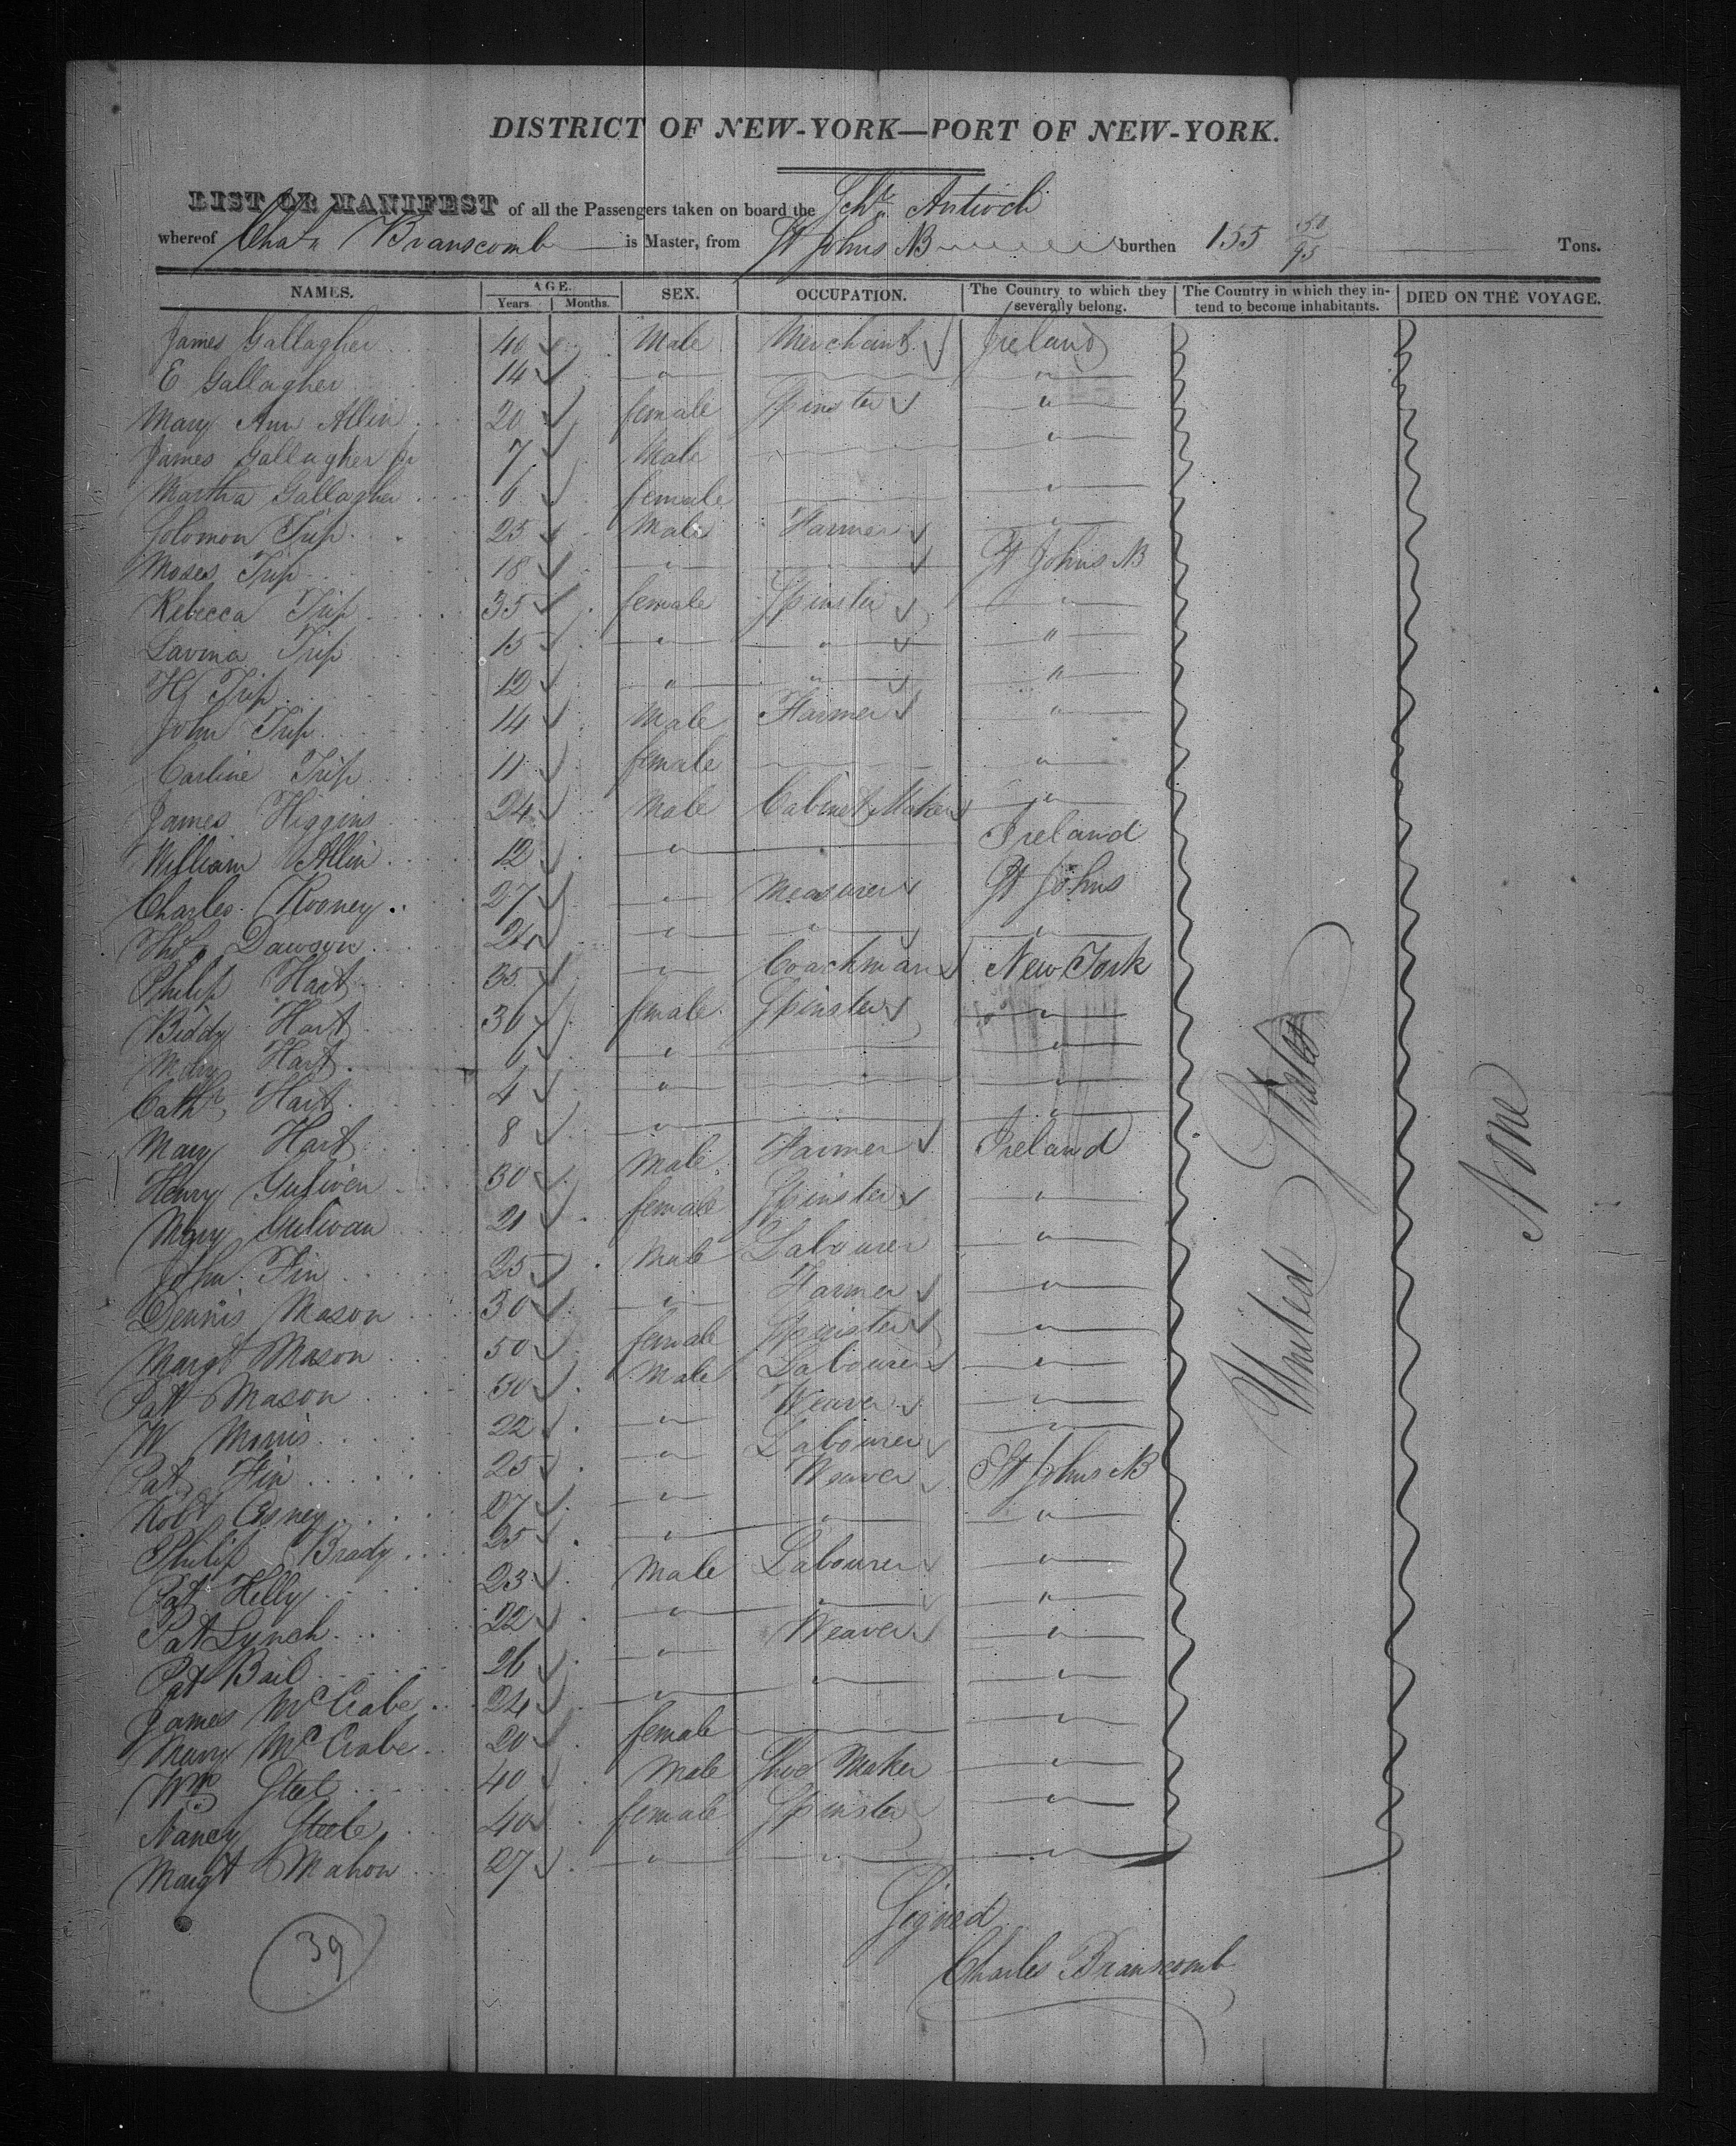 DISTRICT OF NEW-YORK—PORT OF NEW-YORK.
LIST OR MANIFEST of all the Passengers taken on board the Schr. Antioch
whereof Chas. Branscomb is Master, from St Johns NB burthen 155 50/95 Tons.
NAMES. AGE. Years. Months. SEX. OCCUPATION. The Country to which they severally belong. The Country in which they intend to become inhabitants. DIED ON THE VOYAGE.
James Gallagher 40 Male Merchant Ireland
E Gallagher 14 " "
Mary Ann Allin 20 female Spinster "
James Gallagher Jr 7 Male "
Martha Gallagher 6 female "
Solomon Trip 25 Male Farmer "
Moses Trip 18 " " St Johns NB
Rebecca Trip 35 female Spinster "
Lavina Trip 15 " " "
H Trip 12 " " "
John Trip 14 Male Farmer "
Carline Trip 11 female "
James Higgins 24 Male Cabinet Maker "
William Allin 12 " Ireland
Charles Rooney 27 " Measurer St Johns
Thos Dawson 24 " " "
Philip Hart 35 " Coachman New York
Biddy Hart 36 female Spinster "
Mary Hart 6 " "
Cathe Hart 4 " "
Mary Hart 8 " "
Henry Suliven 30 Male Farmer Ireland
Mary Sulivan 21 female Spinster "
John Fin 25 Male Labourer "
Dennis Mason 30 " Farmer "
Margt Mason 50 female Spinster "
Patt Mason 30 Male Labourer "
W Morris 22 " Weaver "
Pat Fin 25 " Labourer "
Robt 27 " Weaver St Johns NB
Philip Brady 25 " " "
Pat Kelly 23 Male Labourer "
Pat Lynch 22 " " "
Pat Bail 26 " Weaver "
James McCrabe 24 " " "
Mary McCrabe 20 female "
Wm Steel 40 Male Shoe Maker "
Nancy Steele 40 female Spinster "
Margt Mahon 27 " " "
United States
None
Signed
Charles Branscomb
39